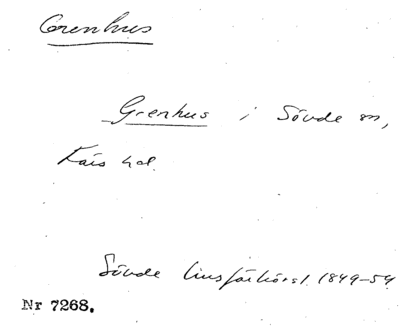 Grenhus
Grenhus i Sövde sn,
Färs hd.
Sövde husförhörsl. 1849-54
Nr 7268.